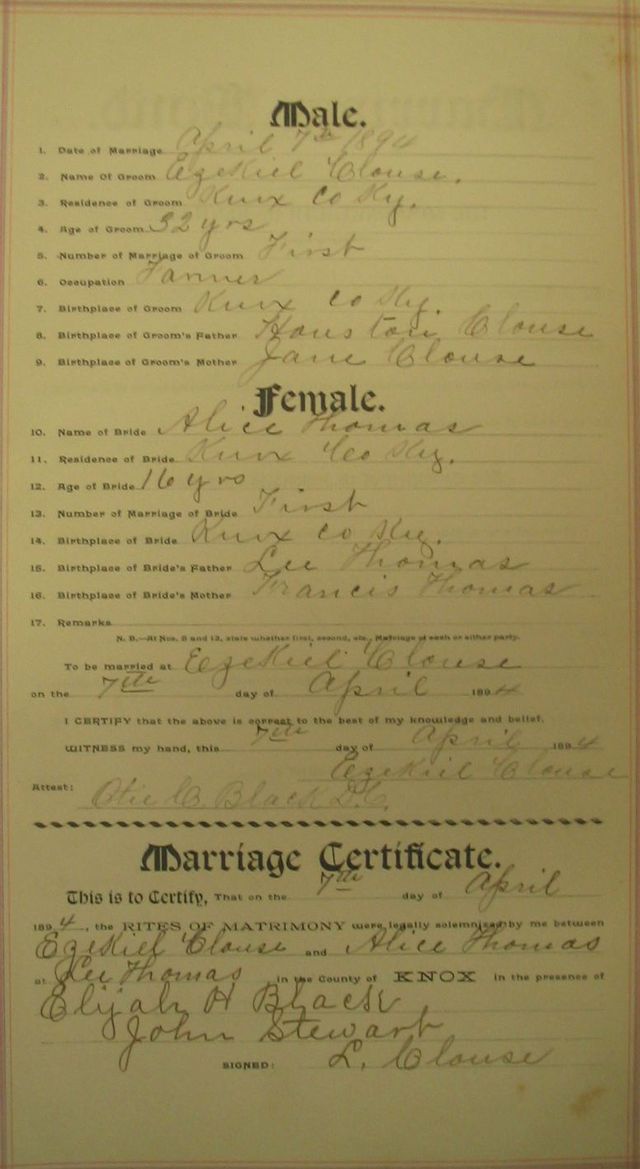 Male.
1. Date of Marriage April 7th 1894
2. Name Of Groom Ezekiel Clouse.
3. Residence of Groom Knox Co Ky.
4. Age of Groom 32 yrs
5. Number of Marriage of Groom First
6. Occupation Farmer
7. Birthplace of Groom Knox Co Ky.
8. Birthplace of Groom's Father Houston Clouse
9. Birthplace of Groom's Mother Jane Clouse
Female.
10. Name of Bride Alice Thomas
11. Residence of Bride Knox Co Ky.
12. Age of Bride 16 yrs
13. Number of Marriage of Bride First
14. Birthplace of Bride Knox Co Ky.
15. Birthplace of Bride's Father Lee Thomas
16. Birthplace of Bride's Mother Francis Thomas
17. Remarks
N. B.—At Nos. 5 and 13, state whether first, second, etc., Marriage of each or either party.
To be married at Ezekiel Clouse
on the 7th day of April 1894
I CERTIFY that the above is correct to the best of my knowledge and belief.
WITNESS my hand, this 7th day of April 1894
Ezekiel Clouse
Attest: Otie C. Black D.C.
Marriage Certificate.
This is to Certify, That on the 7th day of April
1894, the RITES OF MATRIMONY were legally solemnized by me between
Ezekiel Clouse and Alice Thomas
at Lee Thomas in the County of KNOX in the presence of
Elijah H Black
John Stewart
SIGNED: L. Clouse